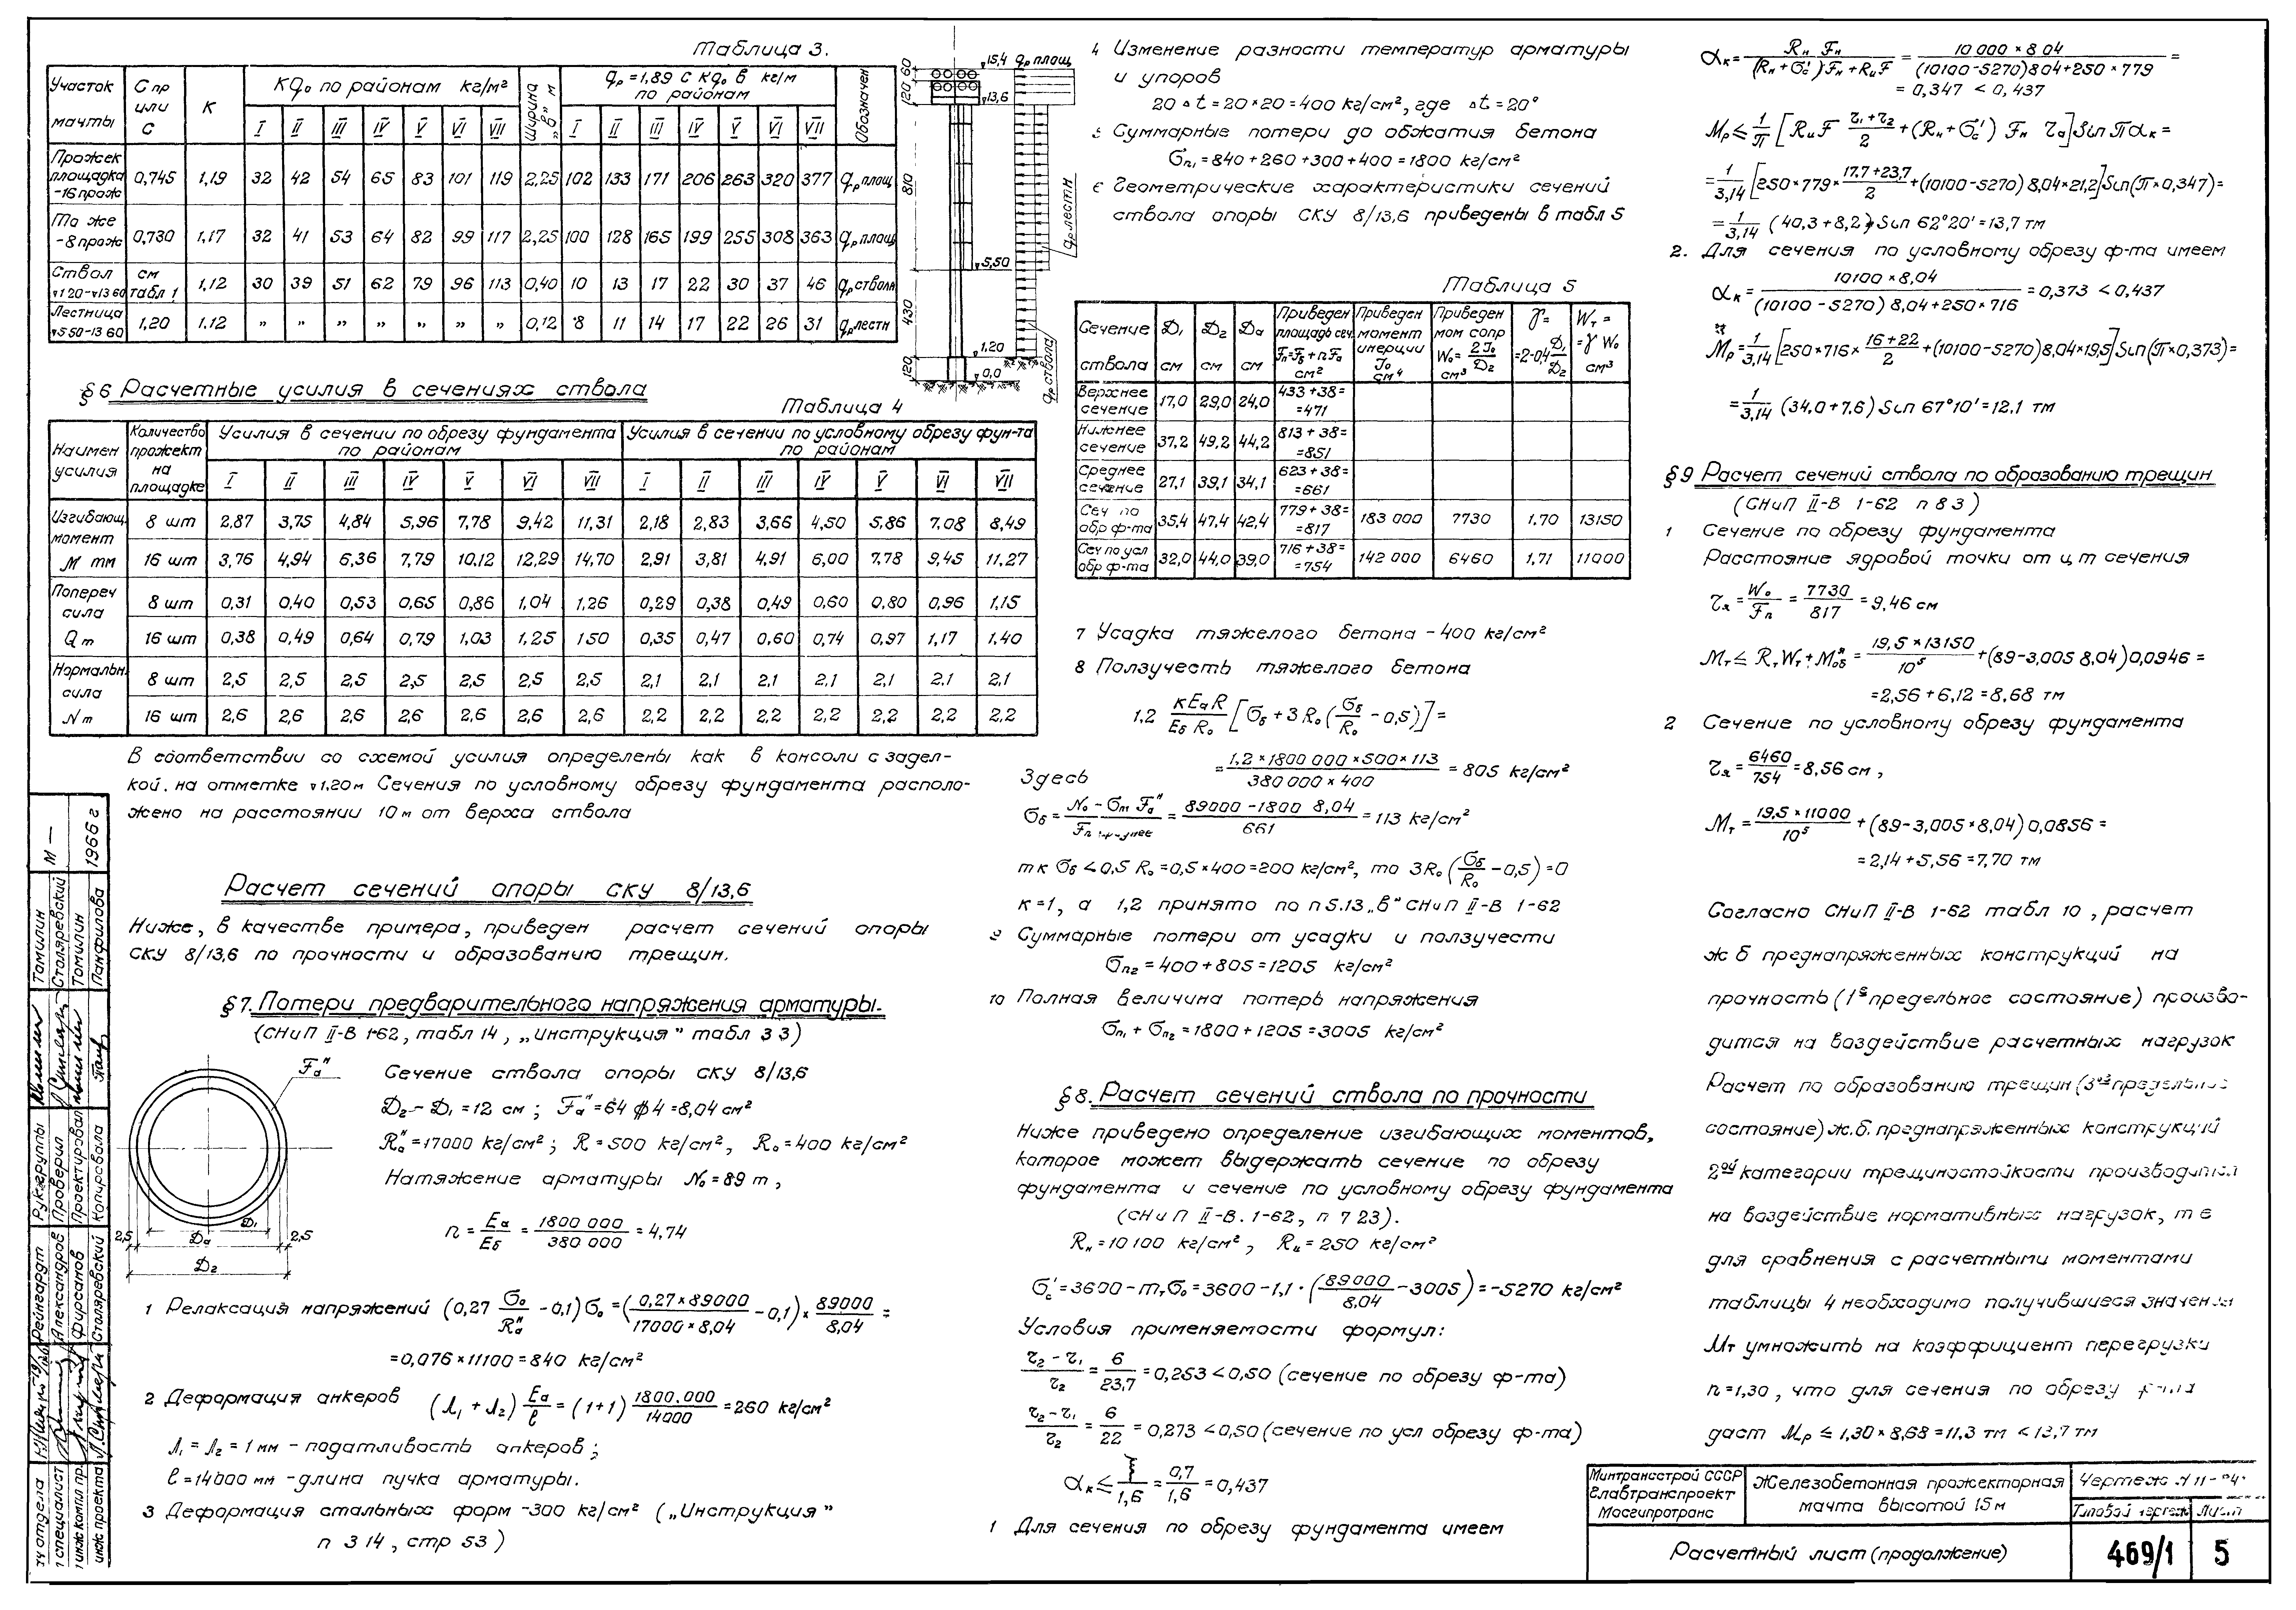 Таблица 3.
Участок мачты | Cпр или C | К | Kq₀ по районам кг/м² | Ширина „в" м | qр = 1,89 C Kq₀ в кг/м по районам | Обозначен
I II III IV V VI VII | I II III IV V VI VII
Прожек площадка -16 прож | 0,745 | 1,19 | 32 | 42 | 54 | 65 | 83 | 101 | 119 | 2,25 | 102 | 133 | 171 | 206 | 263 | 320 | 377 | qр площ
То же -8 прож | 0,730 | 1,17 | 32 | 41 | 53 | 64 | 82 | 99 | 117 | 2,25 | 100 | 128 | 165 | 199 | 255 | 308 | 363 | qр площ
Ствол ▿1 20-▿13 60 | см табл 1 | 1,12 | 30 | 39 | 51 | 62 | 79 | 96 | 113 | 0,40 | 10 | 13 | 17 | 22 | 30 | 37 | 46 | qр ствола
Лестница ▿5 50-13 60 | 1,20 | 1.12 | „ | „ | „ | „ | „ | „ | „ | 0,12 | 8 | 11 | 14 | 17 | 22 | 26 | 31 | qр лестн
15,4 qр площ
13,6
5,50
1,20
0,0
120 60
810
430
120
qр лестн
qр ствола
§6 Расчетные усилия в сечениях ствола
Таблица 4
Наимен усилия | Количество прожект на площадке | Усилия в сечении по обрезу фундамента по районам | Усилия в сечении по условному обрезу фун-та по районам
I II III IV V VI VII | I II III IV V VI VII
Изгибающ. момент М тм | 8 шт | 2,87 | 3,75 | 4,84 | 5,96 | 7,78 | 9,42 | 11,31 | 2,18 | 2,83 | 3,66 | 4,50 | 5,86 | 7,08 | 8,49
16 шт | 3,76 | 4,94 | 6,36 | 7,79 | 10,12 | 12,29 | 14,70 | 2,91 | 3,81 | 4,91 | 6,00 | 7,78 | 9,45 | 11,27
Попереч сила Q т | 8 шт | 0,31 | 0,40 | 0,53 | 0,65 | 0,86 | 1,04 | 1,26 | 0,29 | 0,38 | 0,49 | 0,60 | 0,80 | 0,96 | 1,15
16 шт | 0,38 | 0,49 | 0,64 | 0,79 | 1,03 | 1,25 | 1 50 | 0,35 | 0,47 | 0,60 | 0,74 | 0,97 | 1,17 | 1,40
Нормальн. сила N т | 8 шт | 2,5 | 2,5 | 2,5 | 2,5 | 2,5 | 2,5 | 2,5 | 2,1 | 2,1 | 2,1 | 2,1 | 2,1 | 2.1 | 2.1
16 шт | 2,6 | 2,6 | 2,6 | 2,6 | 2,6 | 2,6 | 2,6 | 2,2 | 2,2 | 2,2 | 2,2 | 2,2 | 2,2 | 2,2
В соответствии со схемой усилия определены как в консоли с задел-
кой. на отметке ▿1,20м Сечения по условному обрезу фундамента располо-
жено на расстоянии 10м от верха ствола
Расчет сечений опоры СКУ 8/13,6
Ниже, в качестве примера, приведен расчет сечений опоры
СКУ 8/13,6 по прочности и образованию трещин.
§7. Потери предварительного напряжения арматуры.
(СНиП II-В 1-62, табл 14, „Инструкция" табл 3 3)
Fа"
2,5 Dа D₁ 2,5
D₂
Сечение ствола опоры СКУ 8/13,6
D₂ - D₁ = 12 см; Fа" = 64 ϕ 4 = 8,04 см²
Rа" = 17000 кг/см²; R = 500 кг/см², R₀ = 400 кг/см²
Натяжение арматуры N₀ = 89 т,
n = Eа/Eб = 1800 000/380 000 = 4,74
1 Релаксация напряжений (0,27 σ₀/Rа" - 0,1) σ₀ = (0,27×89000/17000×8,04 - 0,1) × 89000/8,04 =
= 0,076×11100 = 840 кг/см²
2 Деформация анкеров (Λ₁ + Λ₂) Eа/ℓ = (1+1) 1800.000/14000 = 260 кг/см²
Λ₁ = Λ₂ = 1мм - податливость анкеров;
ℓ = 14000 мм - длина пучка арматуры.
3 Деформация стальных форм -300 кг/см² („Инструкция"
п 3 14, стр 53)
4 Изменение разности температур арматуры
и упоров
20 Δt = 20×20 = 400 кг/см², где Δt = 20°
5 Суммарные потери до обжатия бетона
σп₁ = 840 + 260 + 300 + 400 = 1800 кг/см²
6 Геометрические характеристики сечений
ствола опоры СКУ 8/13,6 приведены в табл 5
Таблица 5
Сечение ствола | D₁ см | D₂ см | Dа см | Приведен площадь сеч. Fп=Fб+nFа см² | Приведен момент инерции J₀ см⁴ | Приведен мом сопр W₀ = 2J₀/D₂ см³ | γ = =2-0,4 D₁/D₂ | Wт = =γ W₀ см³
Верхнее сечение | 17,0 | 29,0 | 24,0 | 433 + 38= =471
Нижнее сечение | 37,2 | 49,2 | 44,2 | 813 + 38= =851
Среднее сечение | 27,1 | 39,1 | 34,1 | 623 + 38= =661
Сеч по обр ф-та | 35,4 | 47,4 | 42,4 | 779 + 38= =817 | 183 000 | 7730 | 1.70 | 13150
Сеч по усл обр ф-та | 32,0 | 44,0 | 39,0 | 716 + 38= =754 | 142 000 | 6460 | 1,71 | 11000
7 Усадка тяжелого бетона - 400 кг/см²
8 Ползучесть тяжелого бетона
1.2 кEаR/EбR₀ [σб + 3R₀(σб/R₀ - 0,5)] =
= 1,2×1800 000×500×113/380 000×400 = 805 кг/см²
Здесь
σб = N₀ - σп₁ Fа"/Fп = 89000 - 1800 8,04/661 = 113 кг/см²
т к σб < 0,5 R₀ = 0,5×400 = 200 кг/см², то 3R₀(σб/R₀ - 0,5) = 0
к = 1, а 1,2 принято по п 5.13 „в" СНиП II-В 1-62
9 Суммарные потери от усадки и ползучести
σп₂ = 400 + 805 = 1205 кг/см²
10 Полная величина потерь напряжения
σп₁ + σп₂ = 1800 + 1205 = 3005 кг/см²
§8. Расчет сечений ствола по прочности
Ниже приведено определение изгибающих моментов,
которое может выдержать сечение по обрезу
фундамента и сечение по условному обрезу фундамента
(СНиП II-В. 1-62, п 7 23).
Rн = 10 100 кг/см², Rи = 250 кг/см²
σс' = 3600 - mтσ₀ = 3600 - 1,1 · (89000/8,04 - 3005) = -5270 кг/см²
Условия применяемости формул:
r₂ - r₁/r₂ = 6/23,7 = 0,253 < 0,50 (сечение по обрезу ф-та)
r₂ - r₁/r₂ = 6/22 = 0,273 < 0,50 (сечение по усл обрезу ф-та)
αк ≤ ξ/1,6 = 0,7/1,6 = 0,437
1 Для сечения по обрезу фундамента имеем
αк = Rн Fн/(Rн + σс')Fн + RиF = 10 000 × 8 04/(10100 - 5270)8 04 + 250 × 779 =
= 0,347 < 0,437
Mр ≤ 1/π [RиF r₁ + r₂/2 + (Rн + σс') Fн rа] Sin παк =
= 1/3,14 [250×779× 17.7+23,7/2 + (10100-5270) 8,04×21,2] Sin(π×0,347) =
= 1/3,14 (40,3 + 8,2) Sin 62°20' = 13,7 тм
2. Для сечения по условному обрезу ф-та имеем
αк = 10100 × 8,04/(10100 - 5270) 8,04 + 250 × 716 = 0,373 < 0,437
Mр = 1/3,14 [250×716× 16+22/2 + (10100-5270)8,04×19,5] Sin(π×0,373) =
= 1/3,14 (34,0 + 7,6) Sin 67°10' = 12,1 тм
§9 Расчет сечений ствола по образованию трещин
(СНиП II-В 1-62 п 8 3)
1 Сечение по обрезу фундамента
Расстояние ядровой точки от ц т сечения
rя = W₀/Fп = 7730/817 = 9,46 см
Mт ≤ RтWт + Mоб = 19,5×13150/10⁵ + (89-3,005 8,04) 0,0946 =
= 2,56 + 6,12 = 8,68 тм
2 Сечение по условному обрезу фундамента
rя = 6460/754 = 8,56 см,
Mт = 19,5×11000/10⁵ + (89-3,005×8,04) 0,0856 =
= 2,14 + 5,56 = 7,70 тм
Согласно СНиП II-В 1-62 табл 10, расчет
ж б преднапряженных конструкций на
прочность (1ᵉ предельное состояние) произво-
дится на воздействие расчетных нагрузок
Расчет по образованию трещин (3ᵉᵉ предельное
состояние) ж.б. преднапряженных конструкций
2ᵒᵘ категории трещиностойкости производится
на воздействие нормативных нагрузок, т е
для сравнения с расчетными моментами
таблицы 4 необходимо получившиеся значения
Mт умножить на коэффициент перегрузки
n = 1,30, что для сечения по обрезу ф-та
даст Mр ≤ 1,30 × 8,68 = 11,3 тм < 13,7 тм
Минтрансстрой СССР
Главтранспроект
Мосгипротранс
Железобетонная прожекторная
мачта высотой 15м
Чертеж
Типовой чертеж Лист
Расчетный лист (продолжение)
469/1
5
М —
1966 г
Томилин
Столяревский
Томилин
Панфилова
Рук. группы
Проверил
Проектировал
Копировала
Рейнгардт
Александров
Фурсанов
Столяревский
отдела
специалист
инж проекта